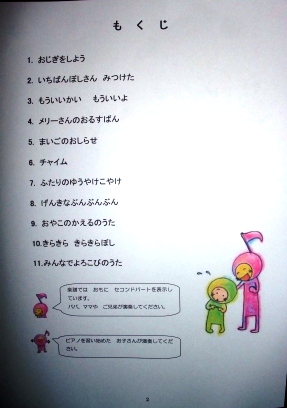 もくじ
1. おじぎをしよう
2. いちばんぼしさん みつけた
3. もういいかい もういいよ
4. メリーさんのおるすばん
5. まいごのおしらせ
6. チャイム
7. ふたりのゆうやけこやけ
8. げんきなぶんぶんぶん
9. おやこのかえるのうた
10.きらきら きらきらぼし
11.みんなでよろこびのうた
楽譜では おもに セコンドパートを表示し
ています。
パパ、ママや ご兄弟が演奏してください。
ピアノを習い始めた お子さんが演奏してくだ
さい。
2